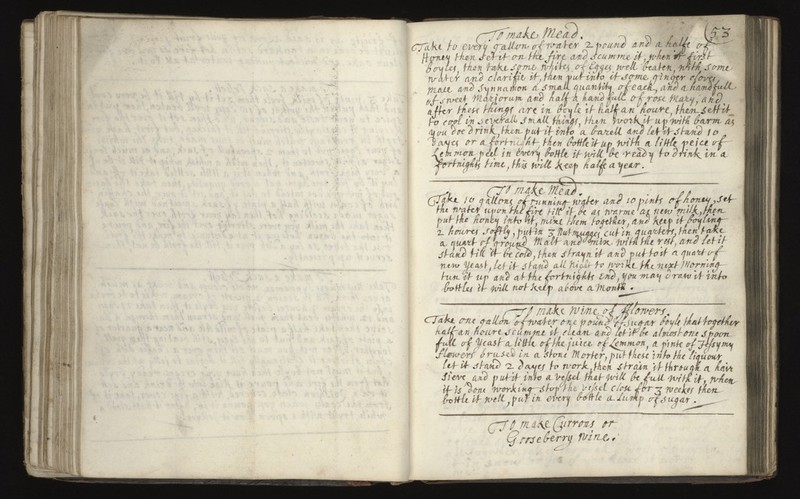 53
To make Mead.
Take to every gallon of water 2 pound and a halfe of
Honey then set it on the fire and scumme it, when it first
boyles, then take some whites of Egges well beaten, with some
water and clarifie it, then put into it some ginger cloves
mace and Synnamon a small quantity of each, and a handfull
of sweet Marjorum and half a handfull of rose Mary, and
after these things are in boyle it half an houre, then sett it
to cool in severall small things, then work it up with barm as
you doe drink, then put it into a barell and let it stand 10
dayes or a fortnight then bottle it up with a little peice of
Lemmon peel in every bottle it will be ready to drink in a
fortnights time, this will keep half a year.
To make Mead.
Take 10 gallons of running water and 10 pints of honey, set
the water upon the fire till it be as warme as new milk, then
put the honey into it, mixe them together, and keep it boyling
2 houres softly, put in 3 Nutmugges cut in quarters, then take
a quart of ground Malt and mix with the rest, and let it
stand till it be cold, then strayn it and put to it a quart of
new yeast, let it stand all night to worke the next Morning
tun it up and at the fortnights end, you may draw it into
bottles it will not keep above a Month.
To make wine of fflowers.
Take one gallon of water one pound of sugar boyle that together
half an houre scumme it clean and let it be almost one spoon
full of yeast a little of the juice of Lemmon, a pinte of
flowers brused in a Stone Morter, put these into the liquour
let it stand 2 dayes to work, then strain it through a hair
sieve and put it into a vessel that will be full with it, when
it is done working stop the vessel close for 3 weekes then
bottle it well, put in every bottle a Lump of sugar.
To make Currons or
Gooseberry wine.